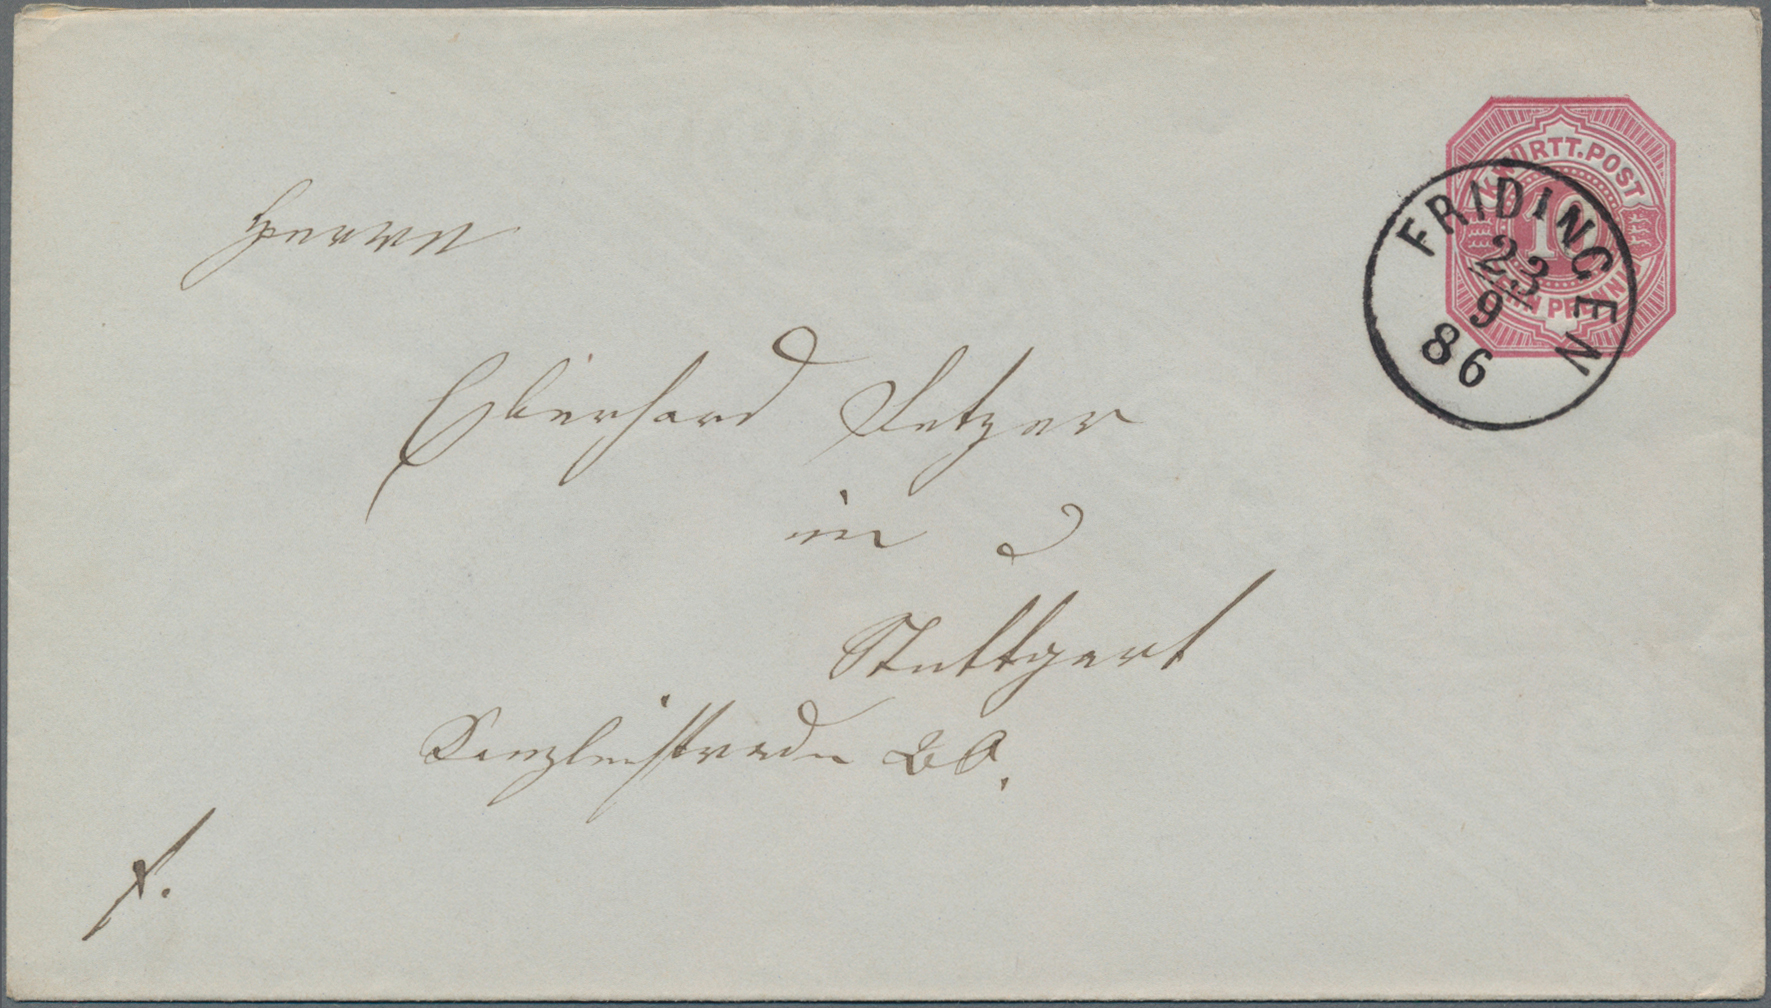 K. WÜRTT. POST
10
ZEHN PFENNIG
FRIDINGEN
23
9
86
Herrn
Eberhard Fetzer
in
Stuttgart
Kanzleistraße